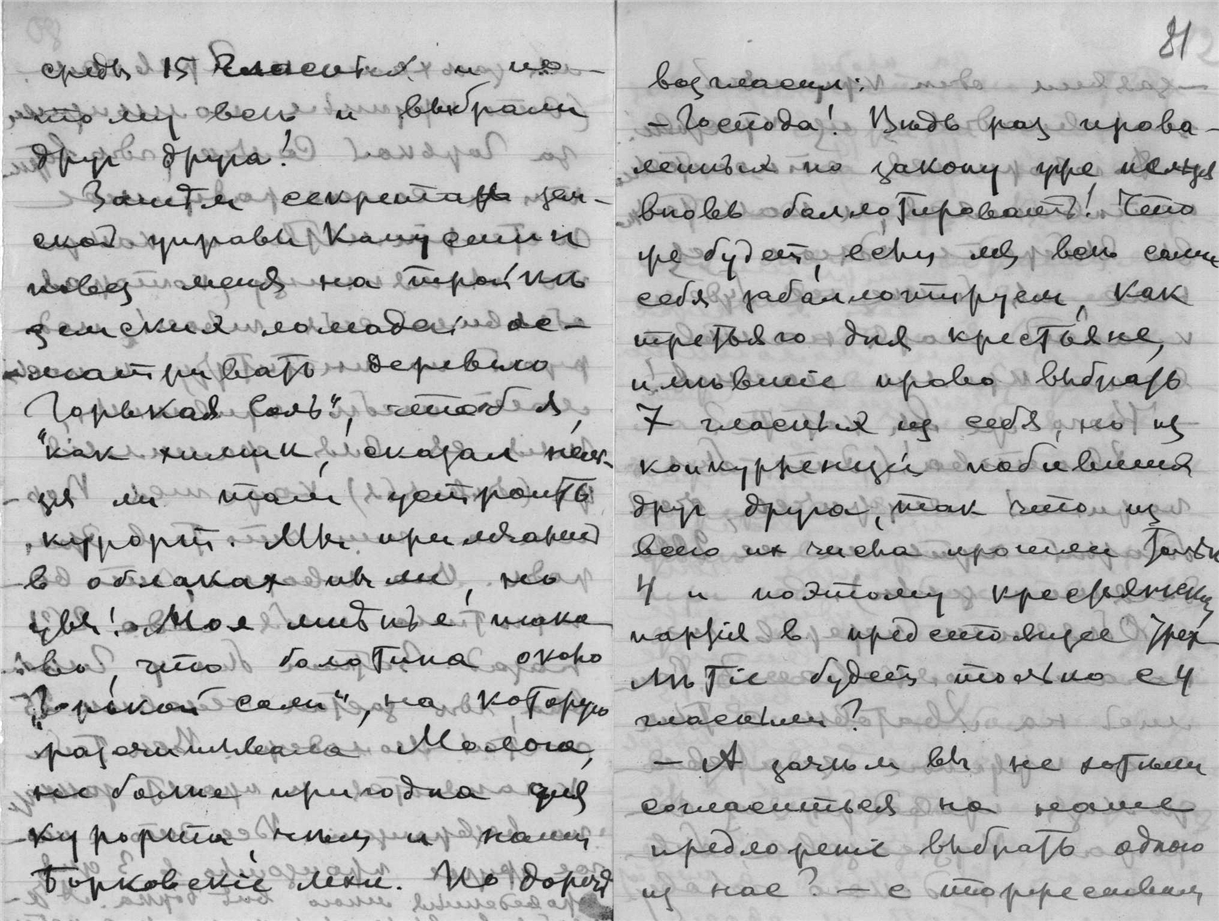 среды 15 гласныхъ и по-
тому всѣ и выбрали
другъ друга!
Затѣмъ секретарь зем-
ской управы
повез меня на тройкѣ
земских лошадей ос-
матривать деревню
„Горькая Соль“, чтоб я,
как химик, сказал нель-
зя ли там устроить
курорт. Мы примчались
в облаках пыли, но
увы! Мое мнѣнье тако-
во, что болотина около
„Горькой соли“, на которую
расчитывала Молога,
не болѣе пригодна для
курорта, чѣм и наши
Борковскіе мхи. По дорогѣ
81
возгласил:
— Господа! Вѣдь раз прова-
ленных по закону уже нельзя
вновь баллотировать! Что
же будет, если мы всѣ сами
себя забаллотируем, как
третьяго дня крестьяне,
имѣвшіе право выбрать
7 гласных из себя, но из
конкурренціи побившія
друг друга, так что из
всего их числа прошли только
4 и поэтому крестьянская
партія в предстоящее трех-
лѣтіе будет только с 4
гласными?
— А зачѣм вы не хотѣли
согласиться на наше
предложеніе выбрать одного
из нас? — с торжеством